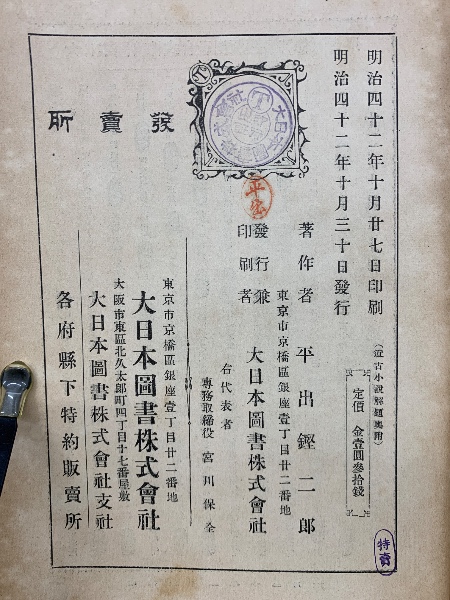 明治四十二年十月廿七日印刷
明治四十二年十月三十日發行
（近古小説解題奧附）
定價 金壹圓參拾錢
著作者 平出鏗二郎
東京市京橋區銀座壹丁目廿二番地
發行兼印刷者 大日本圖書株式會社
右代表者
專務取締役 宮川保全
發賣所
東京市京橋區銀座壹丁目廿二番地
大日本圖書株式會社
大阪市東區北久太郎町四丁目十七番屋敷
大日本圖書株式會社支社
各府縣下特約販賣所
特賣